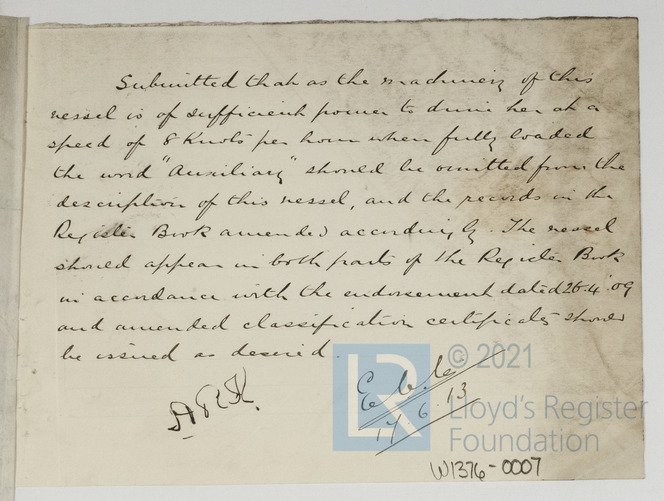 Submitted that as the machinery of this
vessel is of sufficient power to drive her at a
speed of 8 Knots per hour when fully loaded
the word "Auxiliary" should be omitted from the
description of this vessel, and the records in the
Register Book amended accordingly. The vessel
should appear in both parts of the Register Book
in accordance with the endorsement dated 26.4.09
and amended classification certificates should
be issued as desired.
17 6 13
LR
© 2021
Lloyd's Register
Foundation
W1376-0007